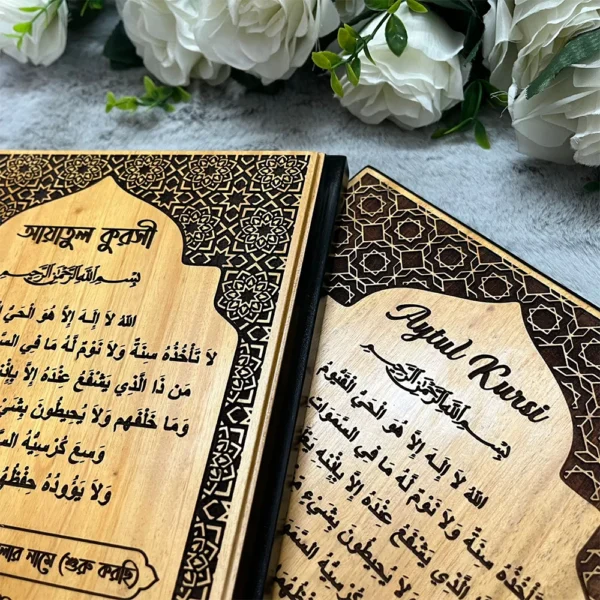 আয়াতুল কুরসী
بسم الله الرحمن الرحيم
اللهُ لَا إِلٰهَ إِلَّا هُوَ الْحَيُّ
لَا تَأْخُذُهُ سِنَةٌ وَلَا نَوْمٌ لَّهُ مَا فِي
مَن ذَا الَّذِي يَشْفَعُ عِنْدَهُ إِلَّا بِإِذْنِهِ
وَمَا خَلْفَهُم وَلَا يُحِيطُونَ بِشَيْءٍ
وَسِعَ كُرْسِيُّهُ
وَلَا يَؤُودُهُ حِفْظُهُمَا
নামে শুরু করছি
Aytul Kursi
بسم الله الرحمن الرحيم
اللهُ لَا إِلٰهَ إِلَّا هُوَ الْحَيُّ الْقَيُّومُ
تَأْخُذُهُ سِنَةٌ وَلَا نَوْمٌ لَّهُ مَا فِي السَّمَوَاتِ
الَّذِي يَشْفَعُ عِنْدَهُ إِلَّا بِإِذْنِهِ
وَلَا يُحِيطُونَ بِشَيْءٍ
كُرْسِيُّهُ